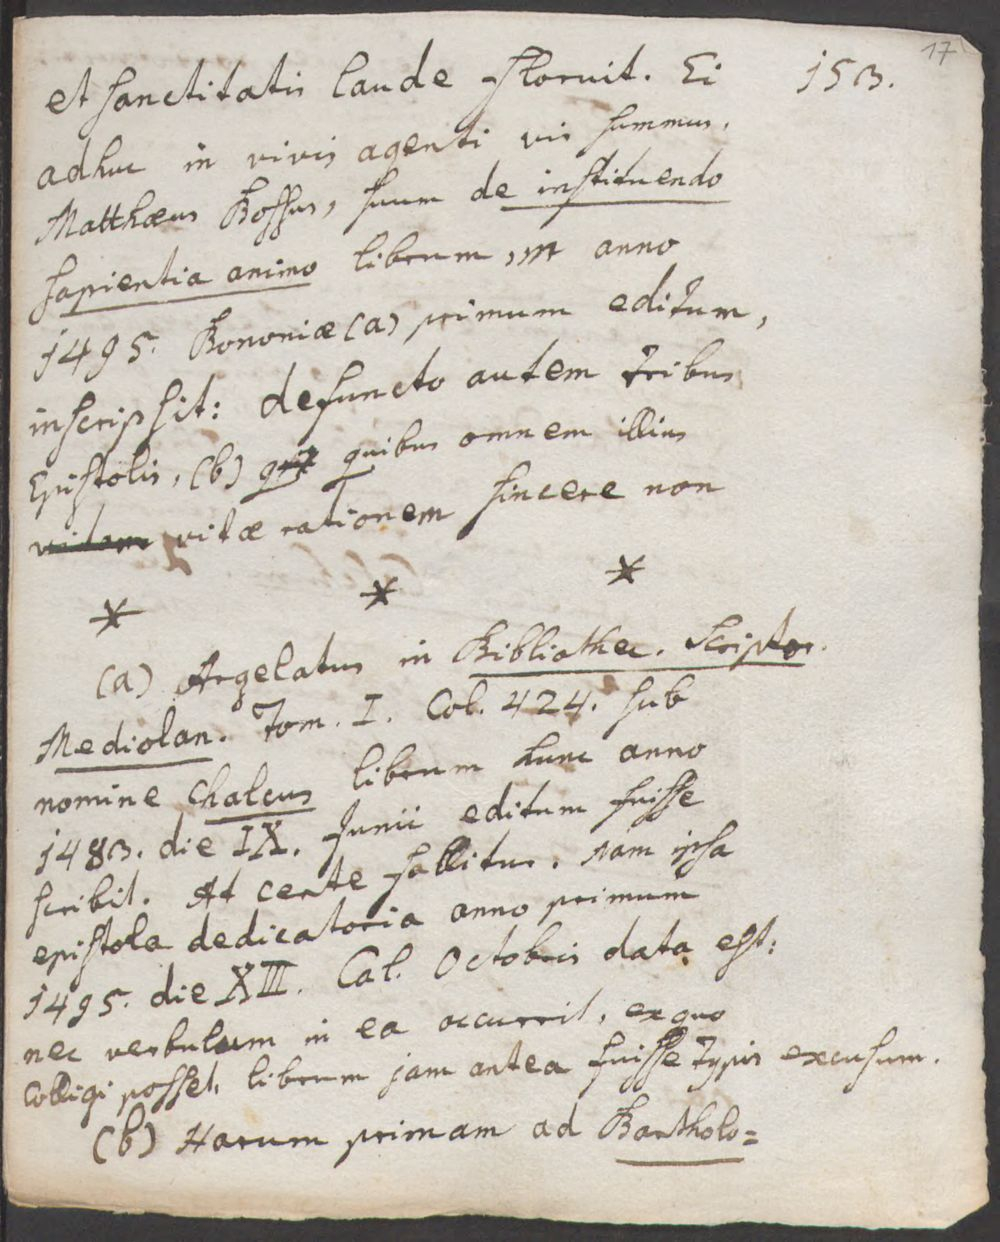 17
et sanctitatis laude floruit. Ei 153.
adhuc in vivis agenti vir summus,
Matthæus Bossus, suum de instituendo
sapientia animo librum, in anno
1495. Bononiæ (a) primum editum,
inscripsit: defuncto autem tribus
Epistolis, (b) quibus omnem illius
vitæ rationem sincere non
* * *
(a) Argelatus in Bibliothec. Scriptor.
Mediolan. Tom. I. Col. 424. sub
nomine Chalcus librum hunc anno
1483. die IX. Junii editum fuisse
scribit. At certe fallitur. Nam ipsa
epistola dedicatoria anno primum
1495. die XIII. Cal. Octobris data est:
nec verbulum in ea occurrit, ex quo
colligi posset, librum jam antea fuisse typis excusum.
(b) Harum primam ad Bartholo=